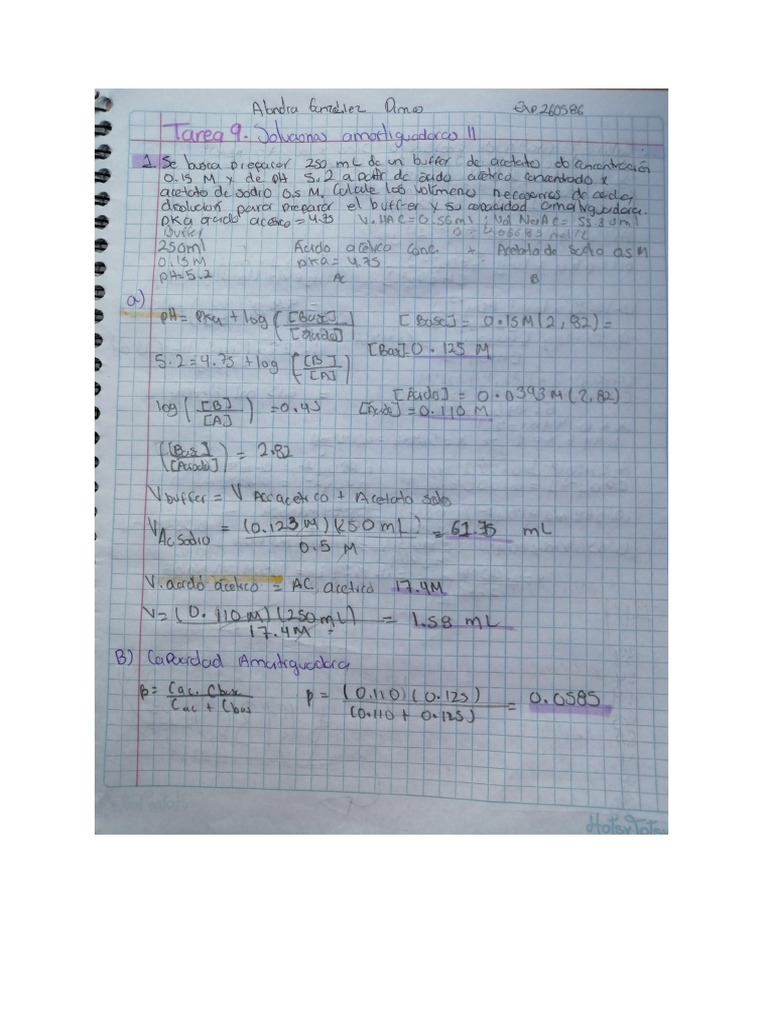 Alondra González Dimas Exp. 260586
Tarea 9. Soluciones amortiguadoras II
1. Se busca preparar 250 mL de un buffer de acetato de concentración
0.15 M y de pH 5.2 a partir de ácido acético concentrado y
acetato de sodio 0.5 M. Calcule los volúmenes necesarios de cada
disolución para preparar el buffer y su capacidad amortiguadora.
pKa acido acetico = 4.75 V. HAC = 0.56ml ; Vol NaAC = 55.30ml
Buffer
250ml Ácido acético conc. + Acetato de Sodio 0.5 M
0.15M pKa = 4.75
pH=5.2 A B
a)
pH= pKa + log ([Base]/[ácido]) [Base] = 0.15M (2,82) =
[Base]=0.125 M
5.2 = 4.75 + log ([B]/[A])
[Ácido] = 0.0393M (2,82)
log ([B]/[A]) = 0.45 [Ácido] = 0.110 M
([Base]/[Acido]) = 2.82
V buffer = V Acc acetico + Acetato sodo
V Ac sodio = (0.123 M)(250 mL)/0.5 M = 61.75 mL
V. acido ácetico = AC. acetico 17.4M
V= (0.110M)(250mL)/17.4M = 1.58 mL
B) Capacidad Amortiguadora
β = Cac. Cbas/Cac + Cbas β = (0.110)(0.125)/(0.110 + 0.125) = 0.0585
HotsyTotsy